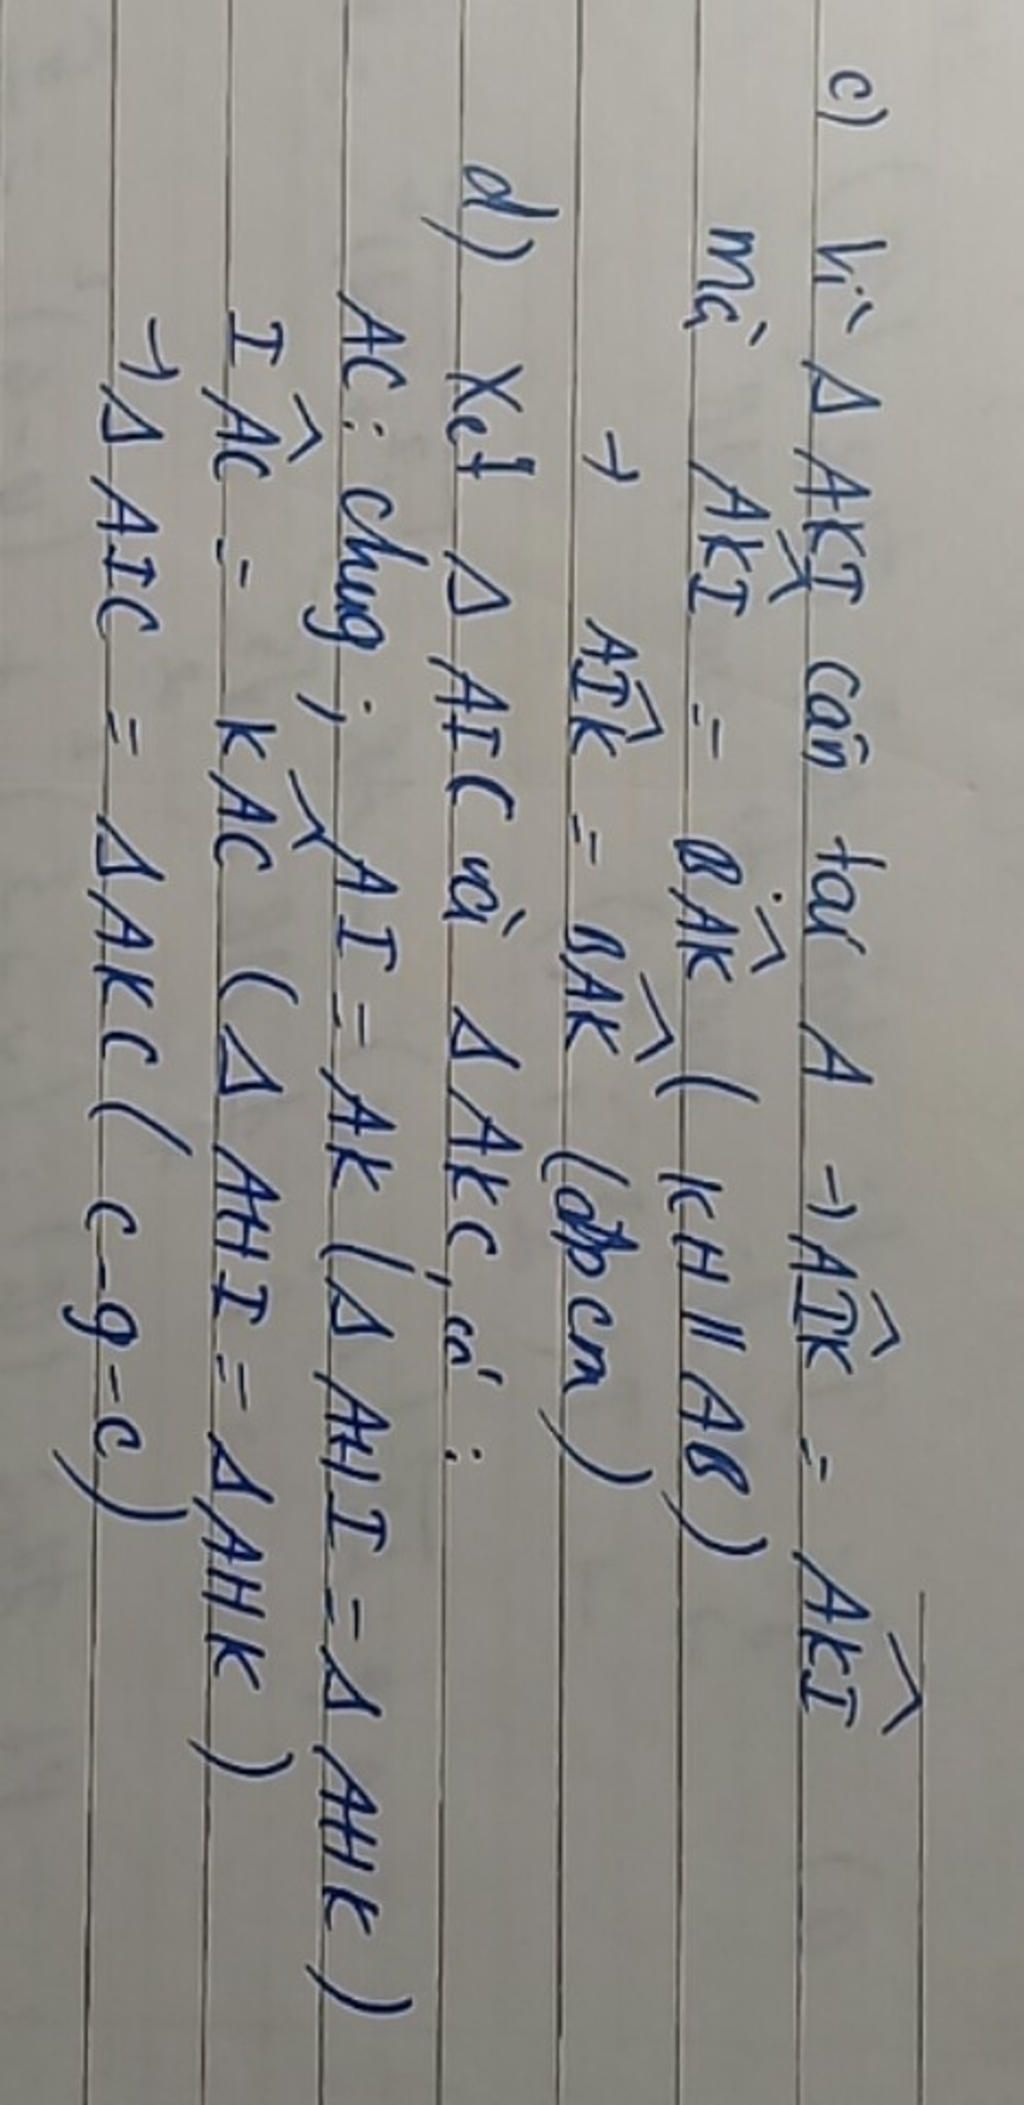 c) Vì Δ AKI cân tại A → AI͡K = AK͡I
mà AK͡I = BA͡K ( KH // AB )
→ AI͡K = BA͡K (đpcm)
d) Xét Δ AIC và Δ AKC, có :
AC : chung ; AI = AK (Δ AHI = Δ AHK )
IA͡C = KA͡C ( Δ AHI = Δ AHK )
→ Δ AIC = Δ AKC ( c - g - c )